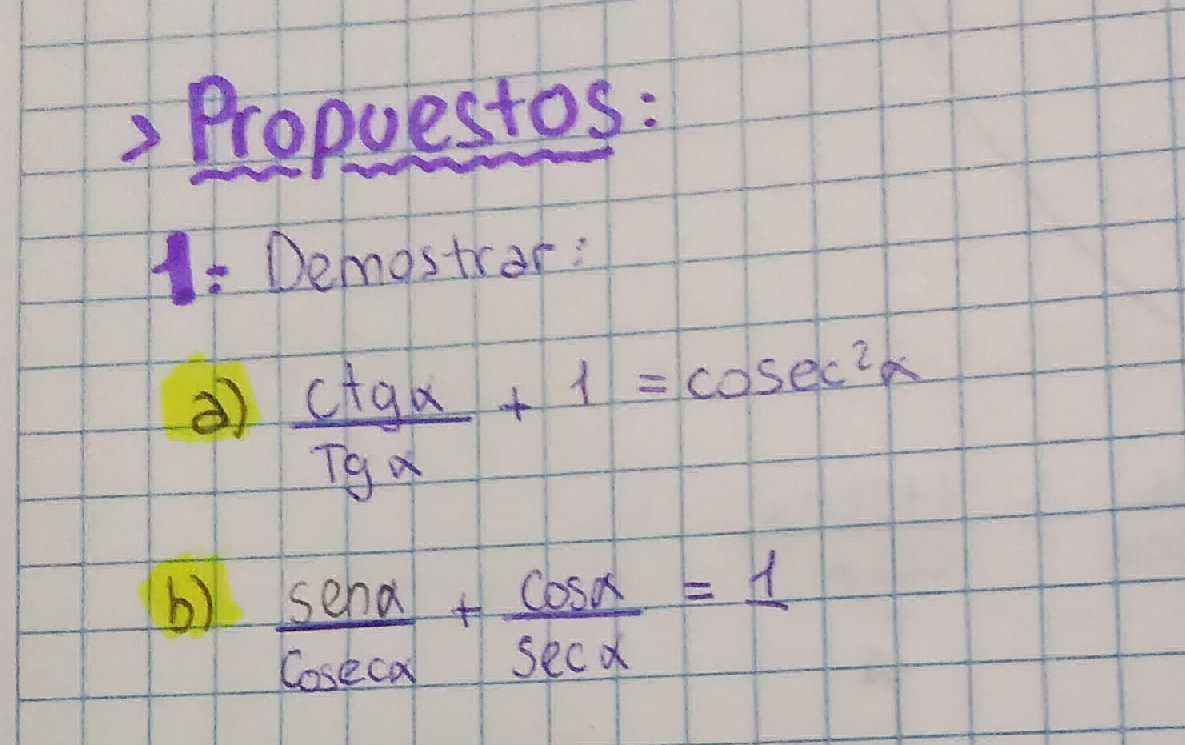 > Propuestos:
1: Demostrar:
a) ctgα/Tgα + 1 = cosec²α
b) senα/Cosecα + cosα/secα = 1